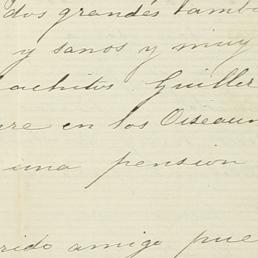 dos grandes tambi
y sanos y muy
achitos Guiller
re en los Oiseau
una pension
rido amigo pue